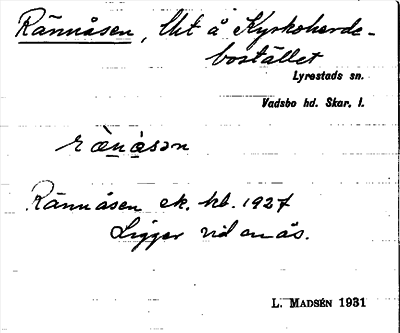 Rännåsen, lht å Kyrkoherde-
bostället
Lyrestads sn.
Vadsbo hd. Skar. l.
Rännåsen ek. kb. 1927
Ligger vid en ås.
L. MADSÉN 1931